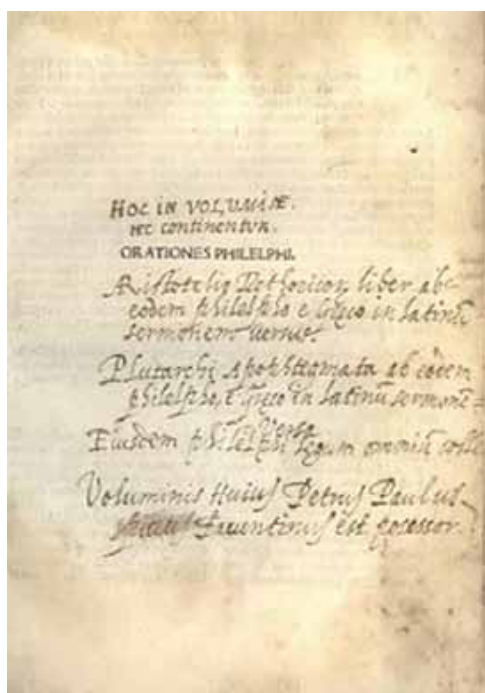 HOC IN VOLUMINE.
HEC continentur.
ORATIONES PHILELPHI.
Aristotelis Rethoricor liber ab
eodem philelpho e Greco in latinũ
sermonem versus.
Plutarchi Apophtegmata ab eodem
philelpho, e Greco in latinũ sermonẽ
versa
Eiusdem philelphi omniũ
Voluminis Huius Petrus Paulus
Faventinus est posessor.